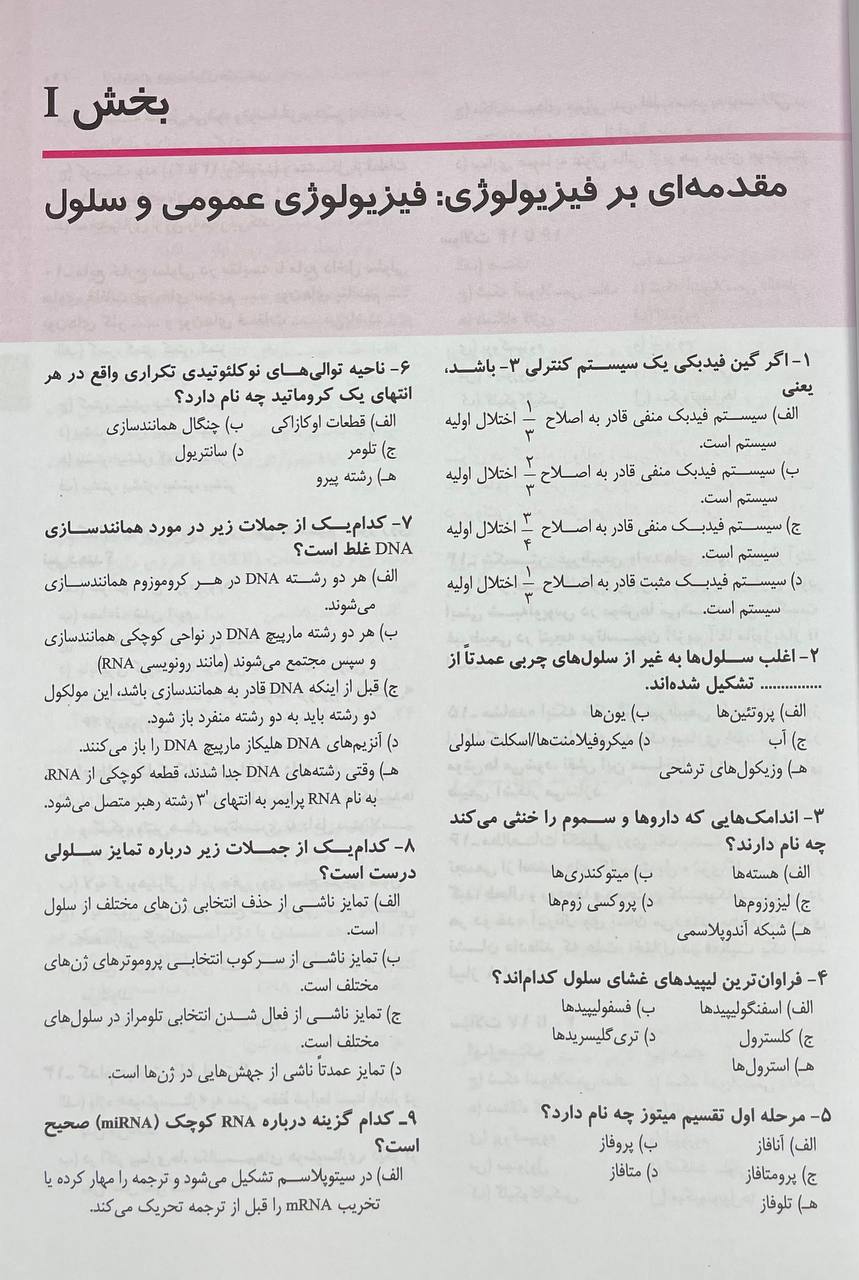 بخش I
مقدمه‌ای بر فیزیولوژی: فیزیولوژی عمومی و سلول
۱- اگر گین فیدبکی یک سیستم کنترلی ۳- باشد،
یعنی
الف) سیستم فیدبک منفی قادر به اصلاح ۱/۳ اختلال اولیه
سیستم است.
ب) سیستم فیدبک منفی قادر به اصلاح ۲/۳ اختلال اولیه
سیستم است.
ج) سیستم فیدبک منفی قادر به اصلاح ۳/۴ اختلال اولیه
سیستم است.
د) سیستم فیدبک مثبت قادر به اصلاح ۱/۳ اختلال اولیه
سیستم است.
۲- اغلب سلول‌ها به غیر از سلول‌های چربی عمدتاً از
.............. تشکیل شده‌اند.
الف) پروتئین‌ها ب) یون‌ها
ج) آب د) میکروفیلامنت‌ها/اسکلت سلولی
هـ) وزیکول‌های ترشحی
۳- اندامک‌هایی که داروها و سموم را خنثی می‌کند
چه نام دارند؟
الف) هسته‌ها ب) میتوکندری‌ها
ج) لیزوزوم‌ها د) پروکسی زوم‌ها
هـ) شبکه آندوپلاسمی
۴- فراوان‌ترین لیپیدهای غشای سلول کدام‌اند؟
الف) اسفنگولیپیدها ب) فسفولیپیدها
ج) کلسترول د) تری‌گلیسریدها
هـ) استرول‌ها
۵- مرحله اول تقسیم میتوز چه نام دارد؟
الف) آنافاز ب) پروفاز
ج) پرومتافاز د) متافاز
هـ) تلوفاز
۶- ناحیه توالی‌های نوکلئوتیدی تکراری واقع در هر
انتهای یک کروماتید چه نام دارد؟
الف) قطعات اوکازاکی ب) چنگال همانندسازی
ج) تلومر د) سانتریول
هـ) رشته پیرو
۷- کدام‌یک از جملات زیر در مورد همانندسازی
DNA غلط است؟
الف) هر دو رشته DNA در هر کروموزوم همانندسازی
می‌شوند.
ب) هر دو رشته مارپیچ DNA در نواحی کوچکی همانندسازی
و سپس مجتمع می‌شوند (مانند رونویسی RNA)
ج) قبل از اینکه DNA قادر به همانندسازی باشد، این مولکول
دو رشته باید به دو رشته منفرد باز شود.
د) آنزیم‌های DNA هلیکاز مارپیچ DNA را باز می‌کنند.
هـ) وقتی رشته‌های DNA جدا شدند، قطعه کوچکی از RNA،
به نام RNA پرایمر به انتهای ۳′ رشته رهبر متصل می‌شود.
۸- کدام‌یک از جملات زیر درباره تمایز سلولی
درست است؟
الف) تمایز ناشی از حذف انتخابی ژن‌های مختلف از سلول
است.
ب) تمایز ناشی از سرکوب انتخابی پروموترهای ژن‌های
مختلف است.
ج) تمایز ناشی از فعال شدن انتخابی تلومراز در سلول‌های
مختلف است.
د) تمایز عمدتاً ناشی از جهش‌هایی در ژن‌ها است.
۹ـ کدام گزینه درباره RNA کوچک (miRNA) صحیح
است؟
الف) در سیتوپلاسم تشکیل می‌شود و ترجمه را مهار کرده یا
تخریب mRNA را قبل از ترجمه تحریک می‌کند.